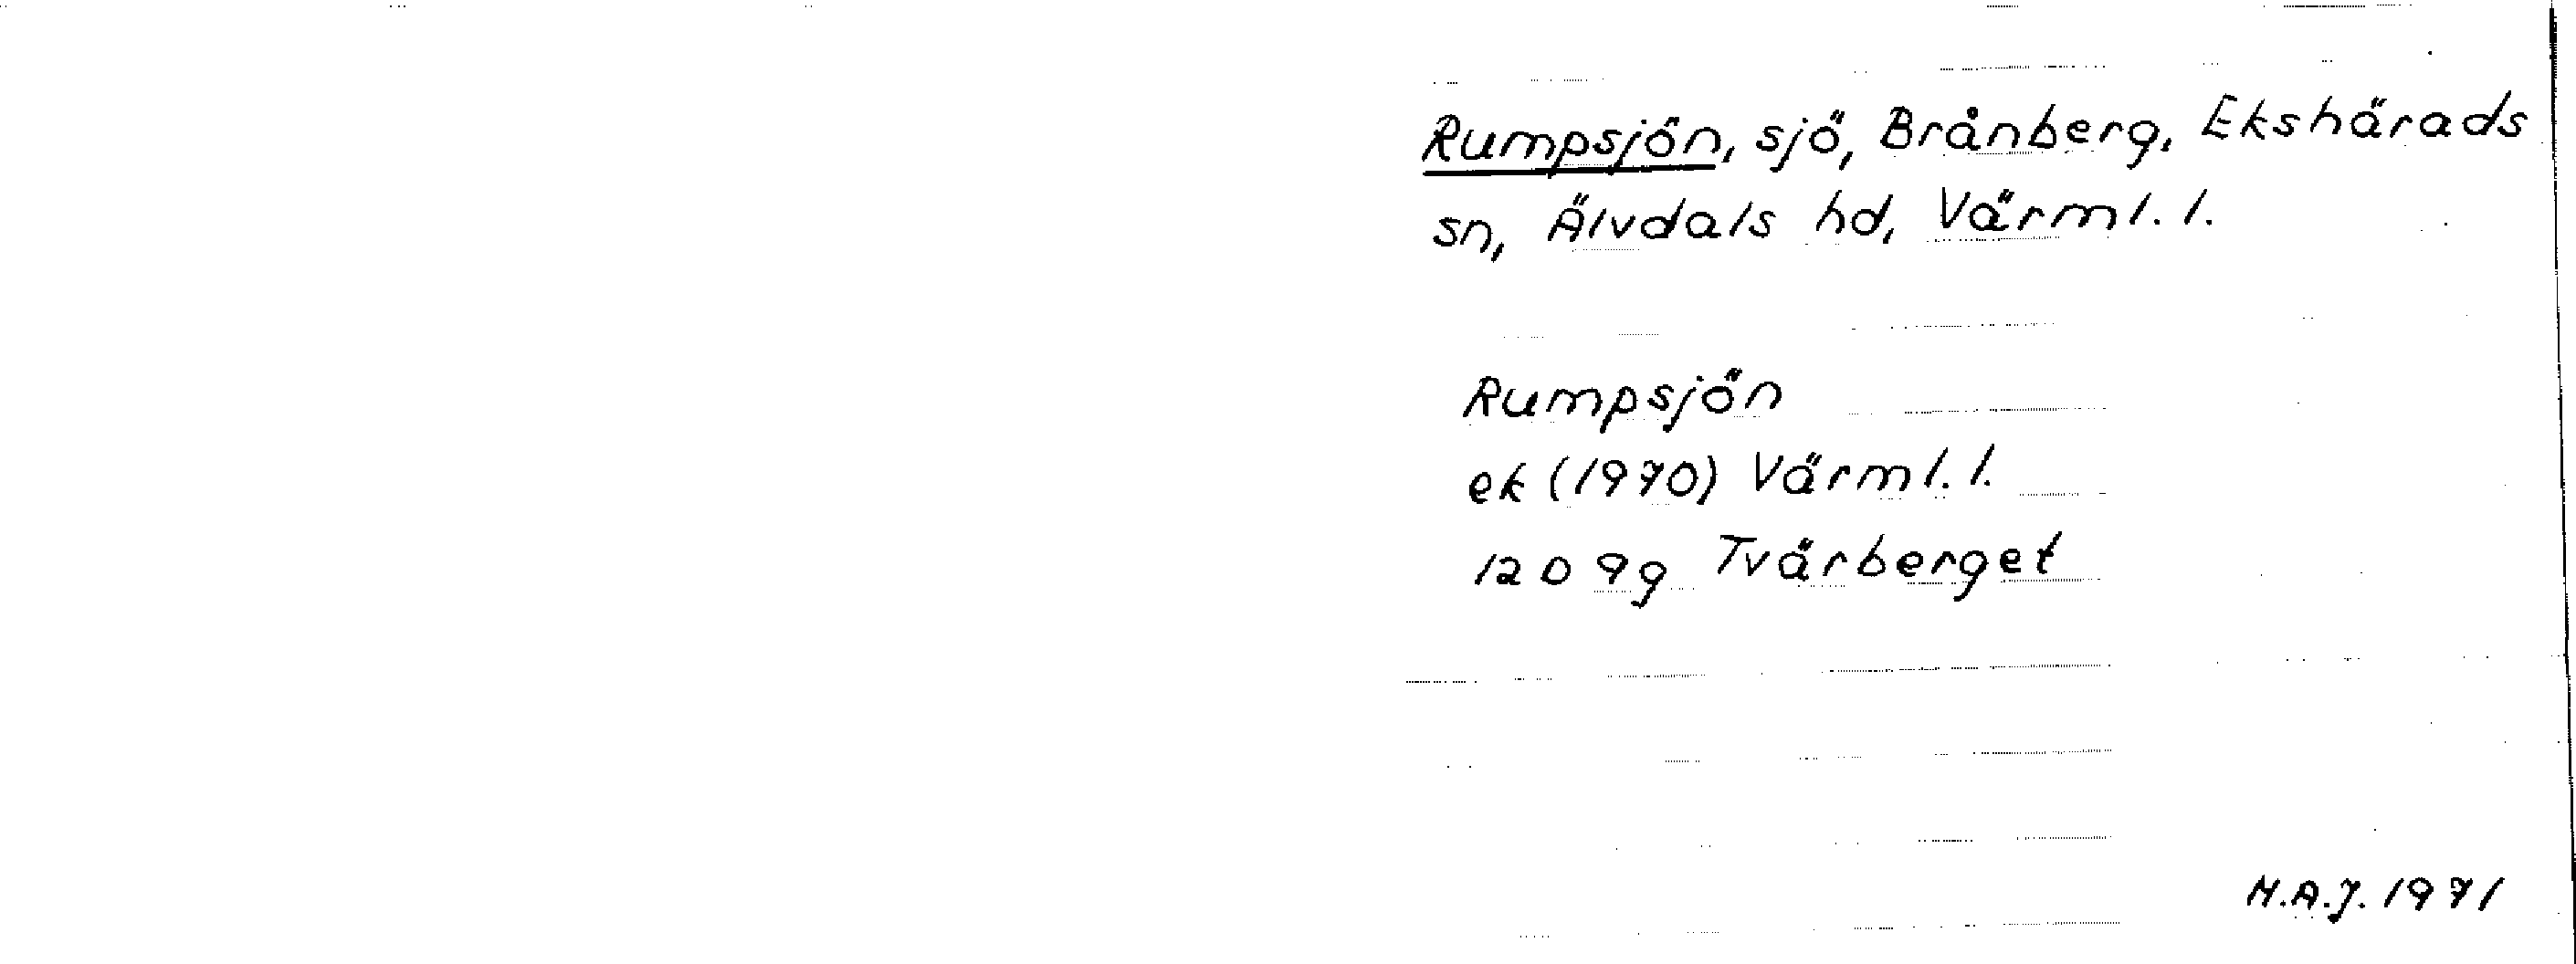 Rumpsjön, sjö, Brånberg, Ekshärads
sn, Älvdals hd, Värml. l.
Rumpsjön
ek (1970) Värml. l.
12 D 9g Tvärberget
H.A.J. 1971